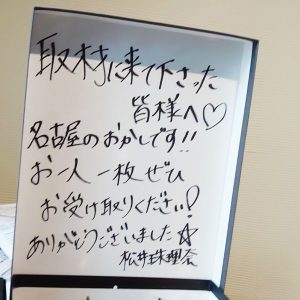 取材に来て下さった
皆様へ♡
名古屋のおかしです!!
お一人一枚ぜひ
お受け取りください!
ありがとうございました☆
松井珠理奈